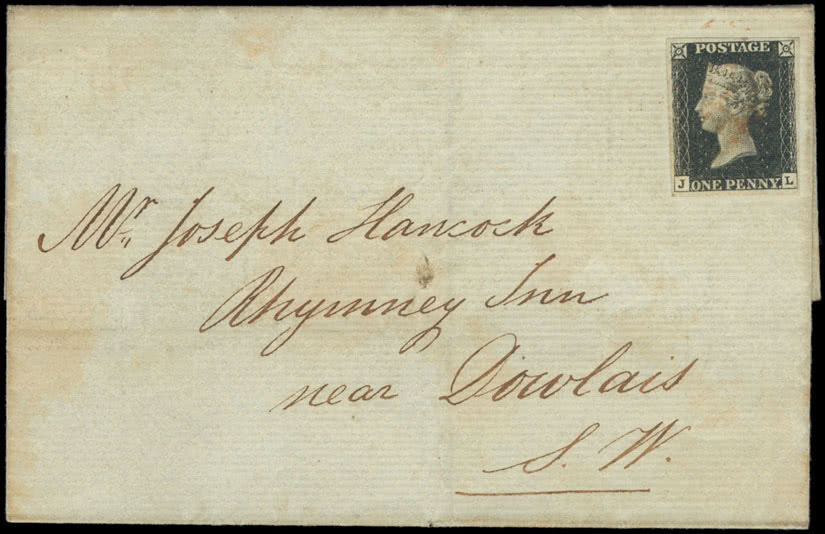 POSTAGE
J ONE PENNY L
Mr. Joseph Hancock
Rhymney Inn
near Dowlais
S. W.